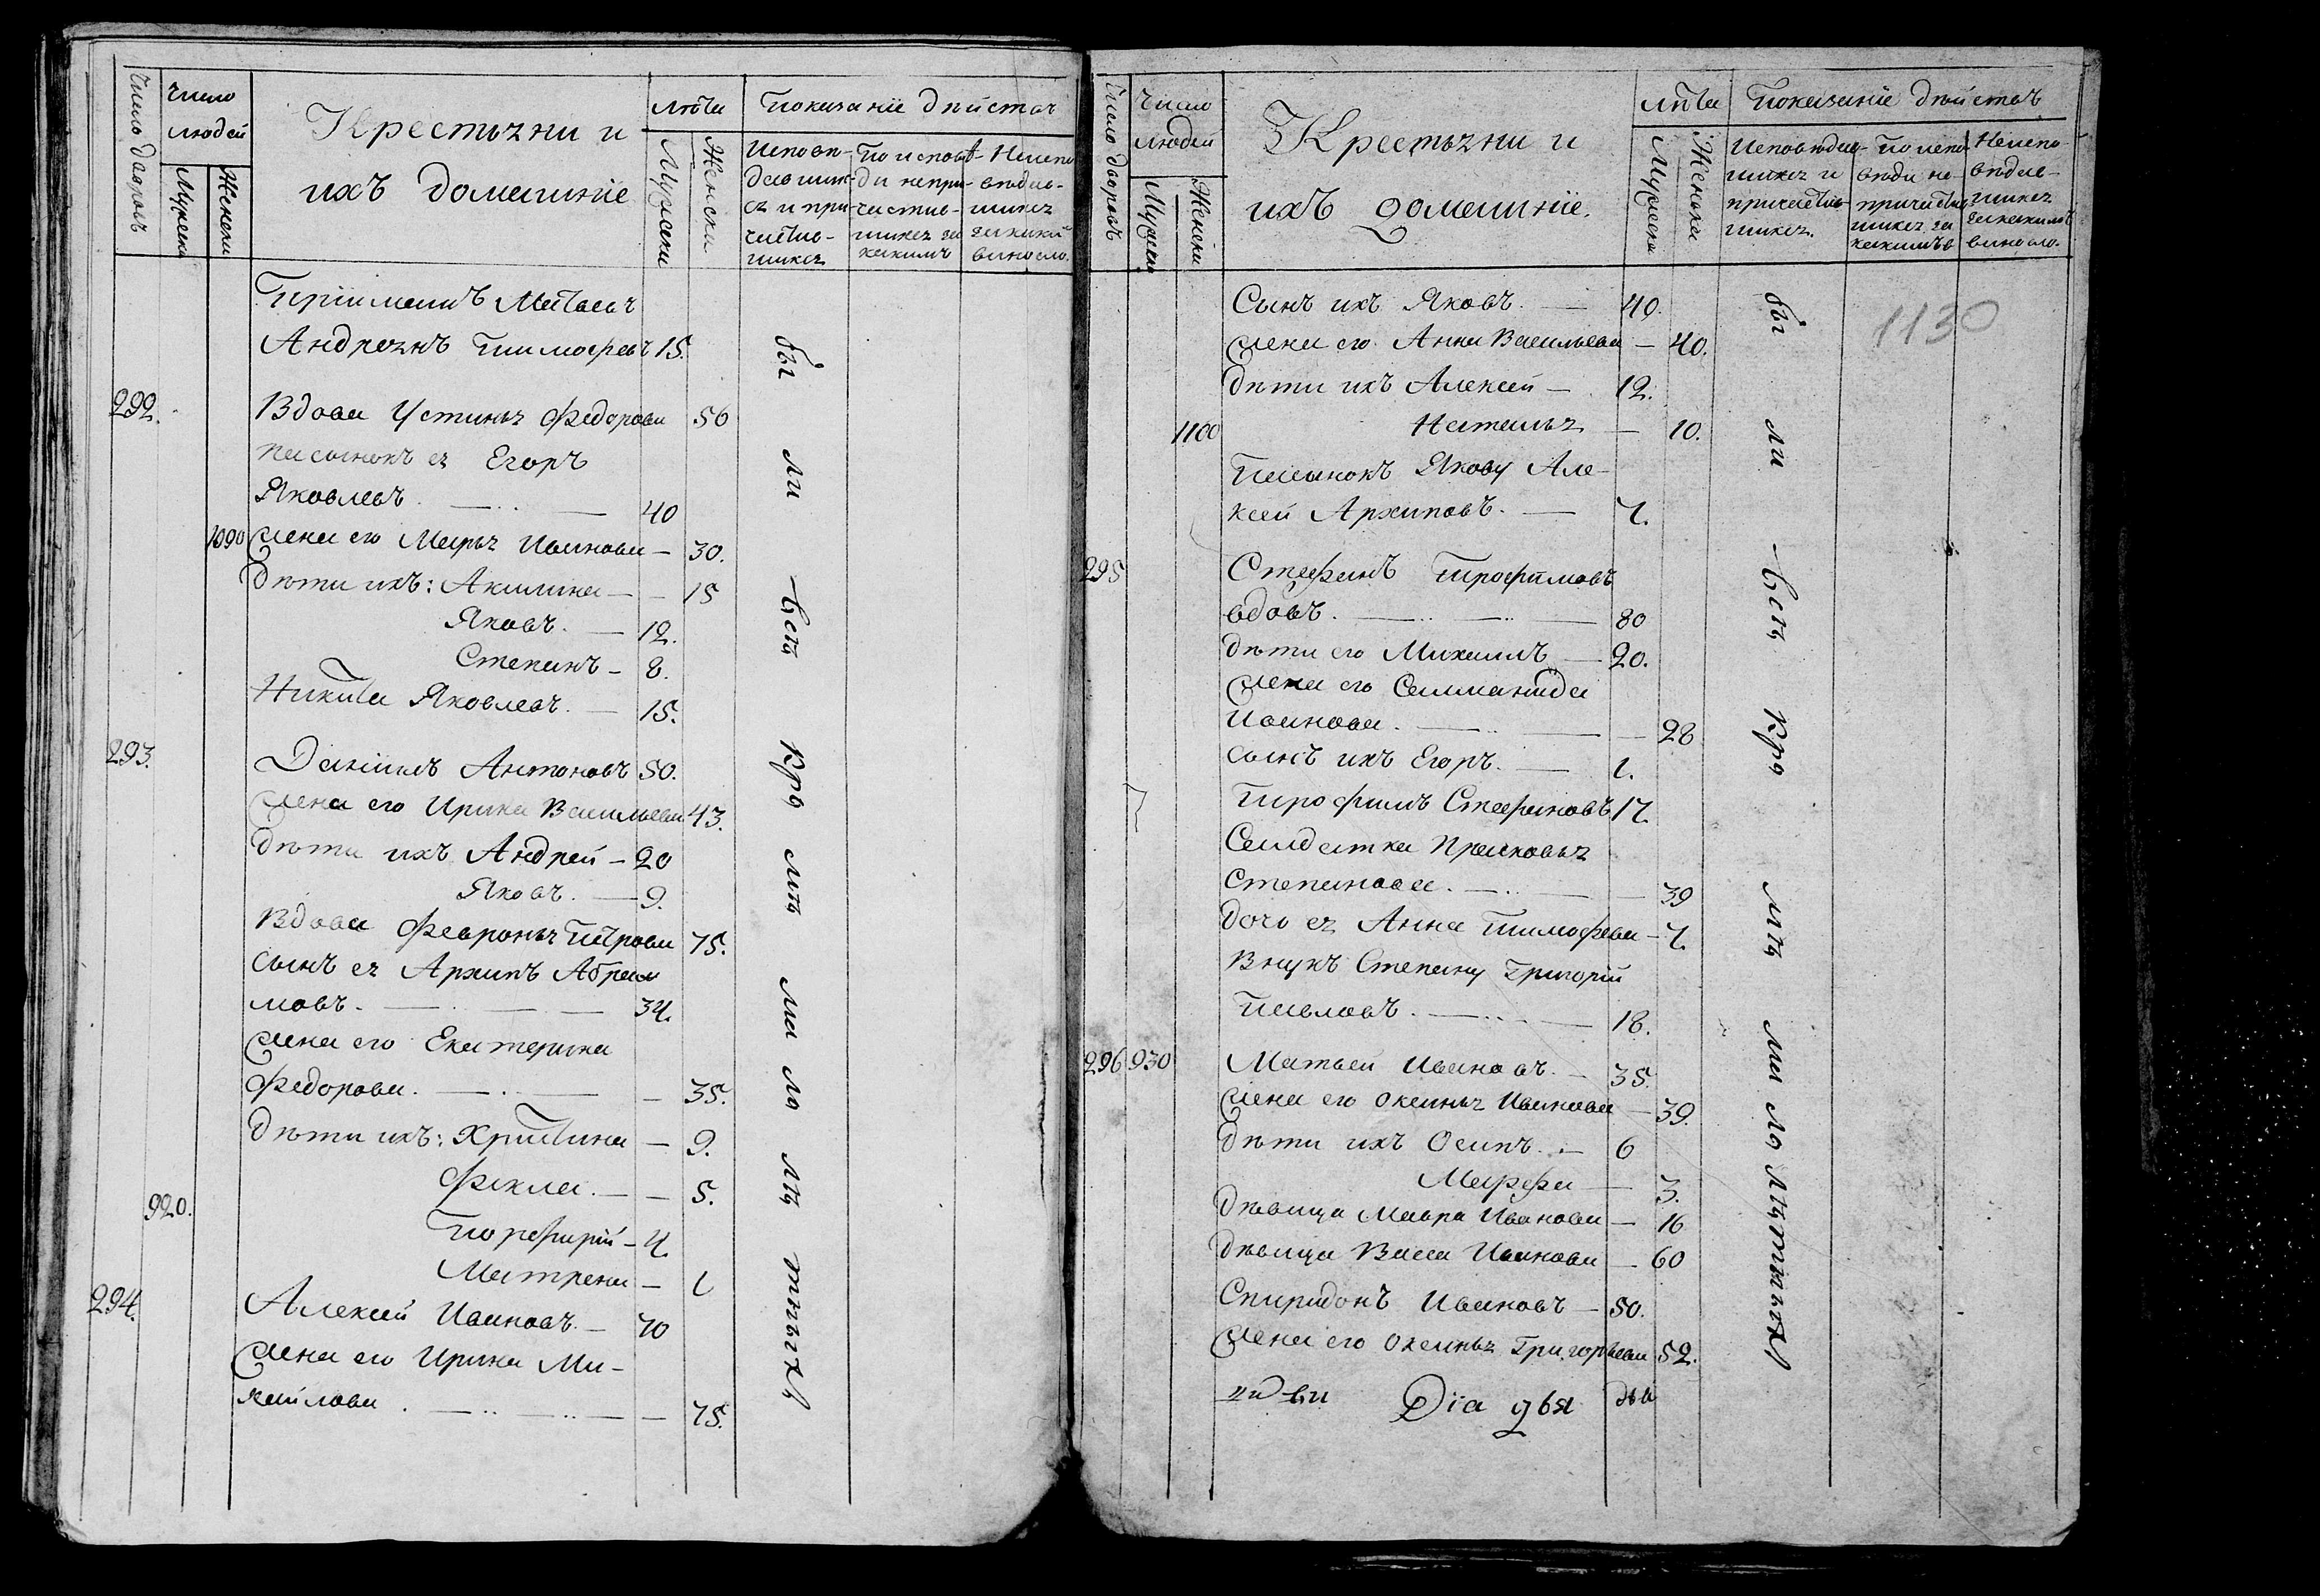 Число дворовъ
Число людей
Мужеска
Женска
Крестьяни и ихъ домашніе
Лѣта
Мужески
Женски
Показаніе дѣйствъ
Исповѣ-
давших-
ся и при-
частив-
шихся
По испов-
ди непри-
частив-
шихся за
какимъ
Неиспо-
вѣдав-
шихся
виносло.
Пріимашъ Матвеъ
Андреянъ Тимофевъ 15.
292. Вдова Устинья Федорова 56
пасынокъ ея Егоръ
Яковлевъ. — 40
1090 Жена его Марья Иванова — 30.
дѣти ихъ: Акилина — 15
Яковъ. — 12.
Степанъ — 8.
Никита Яковлевъ. — 15.
293. Даніилъ Антоновъ 50.
Жена его Ирина Васильева 43.
дѣти ихъ Андрей — 20
Яковъ. — 9.
Вдова Февронья Петрова 75.
сынъ ея Архипъ Абра
мовъ. — 34.
Жена его Екатерина
Федорова. — 35.
Дѣти ихъ: Христина — 9.
Фекла. — 5.
920. Порфирій — 4.
Матрена — 1
294. Алексей Ивановъ. — 70
Жена его Ирина Ми-
хайлова. — 75.
бы ли всѣ кро мѣ ма ло лѣ тныхъ
Число дворовъ
Число людей
Мужеска
Женски
Крестьяни и
ихъ домашніе.
Лѣта
Мужески
Женски
Показаніе дѣйствъ
Исповѣдав-
шихся и
причастив-
шихся.
По испо-
вѣди не-
причастив
шихся за
какимъ в
Неиспо-
вѣдав-
шихся
виносло.
1130
Сынъ ихъ Яковъ. — 40.
Жена его Анна Васильева — 40.
дѣти ихъ Алексей — 12.
1100 Наталья — 10.
Пасынокъ Якову Але-
ксей Архиповъ. — 7.
295 Стефанъ Трофимовъ
вдовъ. — 80
дѣти его Михаилъ — 20.
Жена его Саламанида
Иванова. — 28
сынъ ихъ Егоръ. — 1.
Трофимъ Стефановъ 17.
Салдатка Прасковья
Степанова. — 39
дочь ея Анна Тимофева — 7.
Внукъ Степану Григорій
Павловъ. — 18.
296 930 Матвей Ивановъ. — 35.
Жена его Оксинья Иванова — 39.
дѣти ихъ Осипъ. — 6
Марфа — 3.
дѣвица Мавра Иванова — 16
дѣвица Васса Иванова — 60
Спиридонъ Ивановъ — 50.
Жена его Оксинья Григорьева 52.
Діа
бы ли всѣ кро мѣ ма ло лѣтныхъ